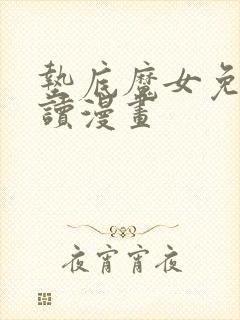 墊底魔女免
讀漫畫
夜宵宵夜